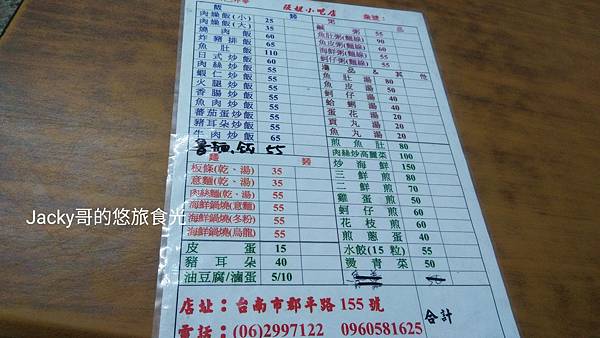 小吧店
桌號：
飯
類
粥
品
肉燥飯(小) 25
肉燥飯(大) 35
燒肉飯 60
炸豬排飯 60
魚肚 110
日式炒飯 60
肉絲炒飯 55
蝦仁炒飯 55
火腿炒飯 55
香腸炒飯 55
魚肉炒飯 55
蕃茄蛋炒飯 55
豬耳朵炒飯 55
牛肉炒飯 65
55
麵 類
板條(乾、湯) 35
意麵(乾、湯) 35
肉絲麵(乾、湯) 55
海鮮鍋燒(意麵) 55
海鮮鍋燒(冬粉) 55
海鮮鍋燒(烏龍) 55
皮蛋 15
豬耳朵 40
油豆腐/滷蛋 5/10
鹹粥 55
魚肚粥(麵線) 90
魚皮粥(麵線) 60
海鮮粥(麵線) 55
蚵仔粥(麵線) 55
湯品&其他
魚肚湯 80
魚皮湯 50
蚵仔湯 40
蛤蜊湯 40
蛋花湯 20
貢丸湯 20
魚丸湯 20
煎魚肚 80
肉絲炒高麗菜 100
炒海鮮 150
三鮮煎 80
二鮮煎 70
雞蛋煎 50
蚵仔煎 60
花枝煎 60
煎蔥蛋 40
水餃(15粒) 55
燙青菜 50
店址：台南市郡平路155號
電話：(06)2997122 0960581625
合計
Jacky哥的悠旅食光